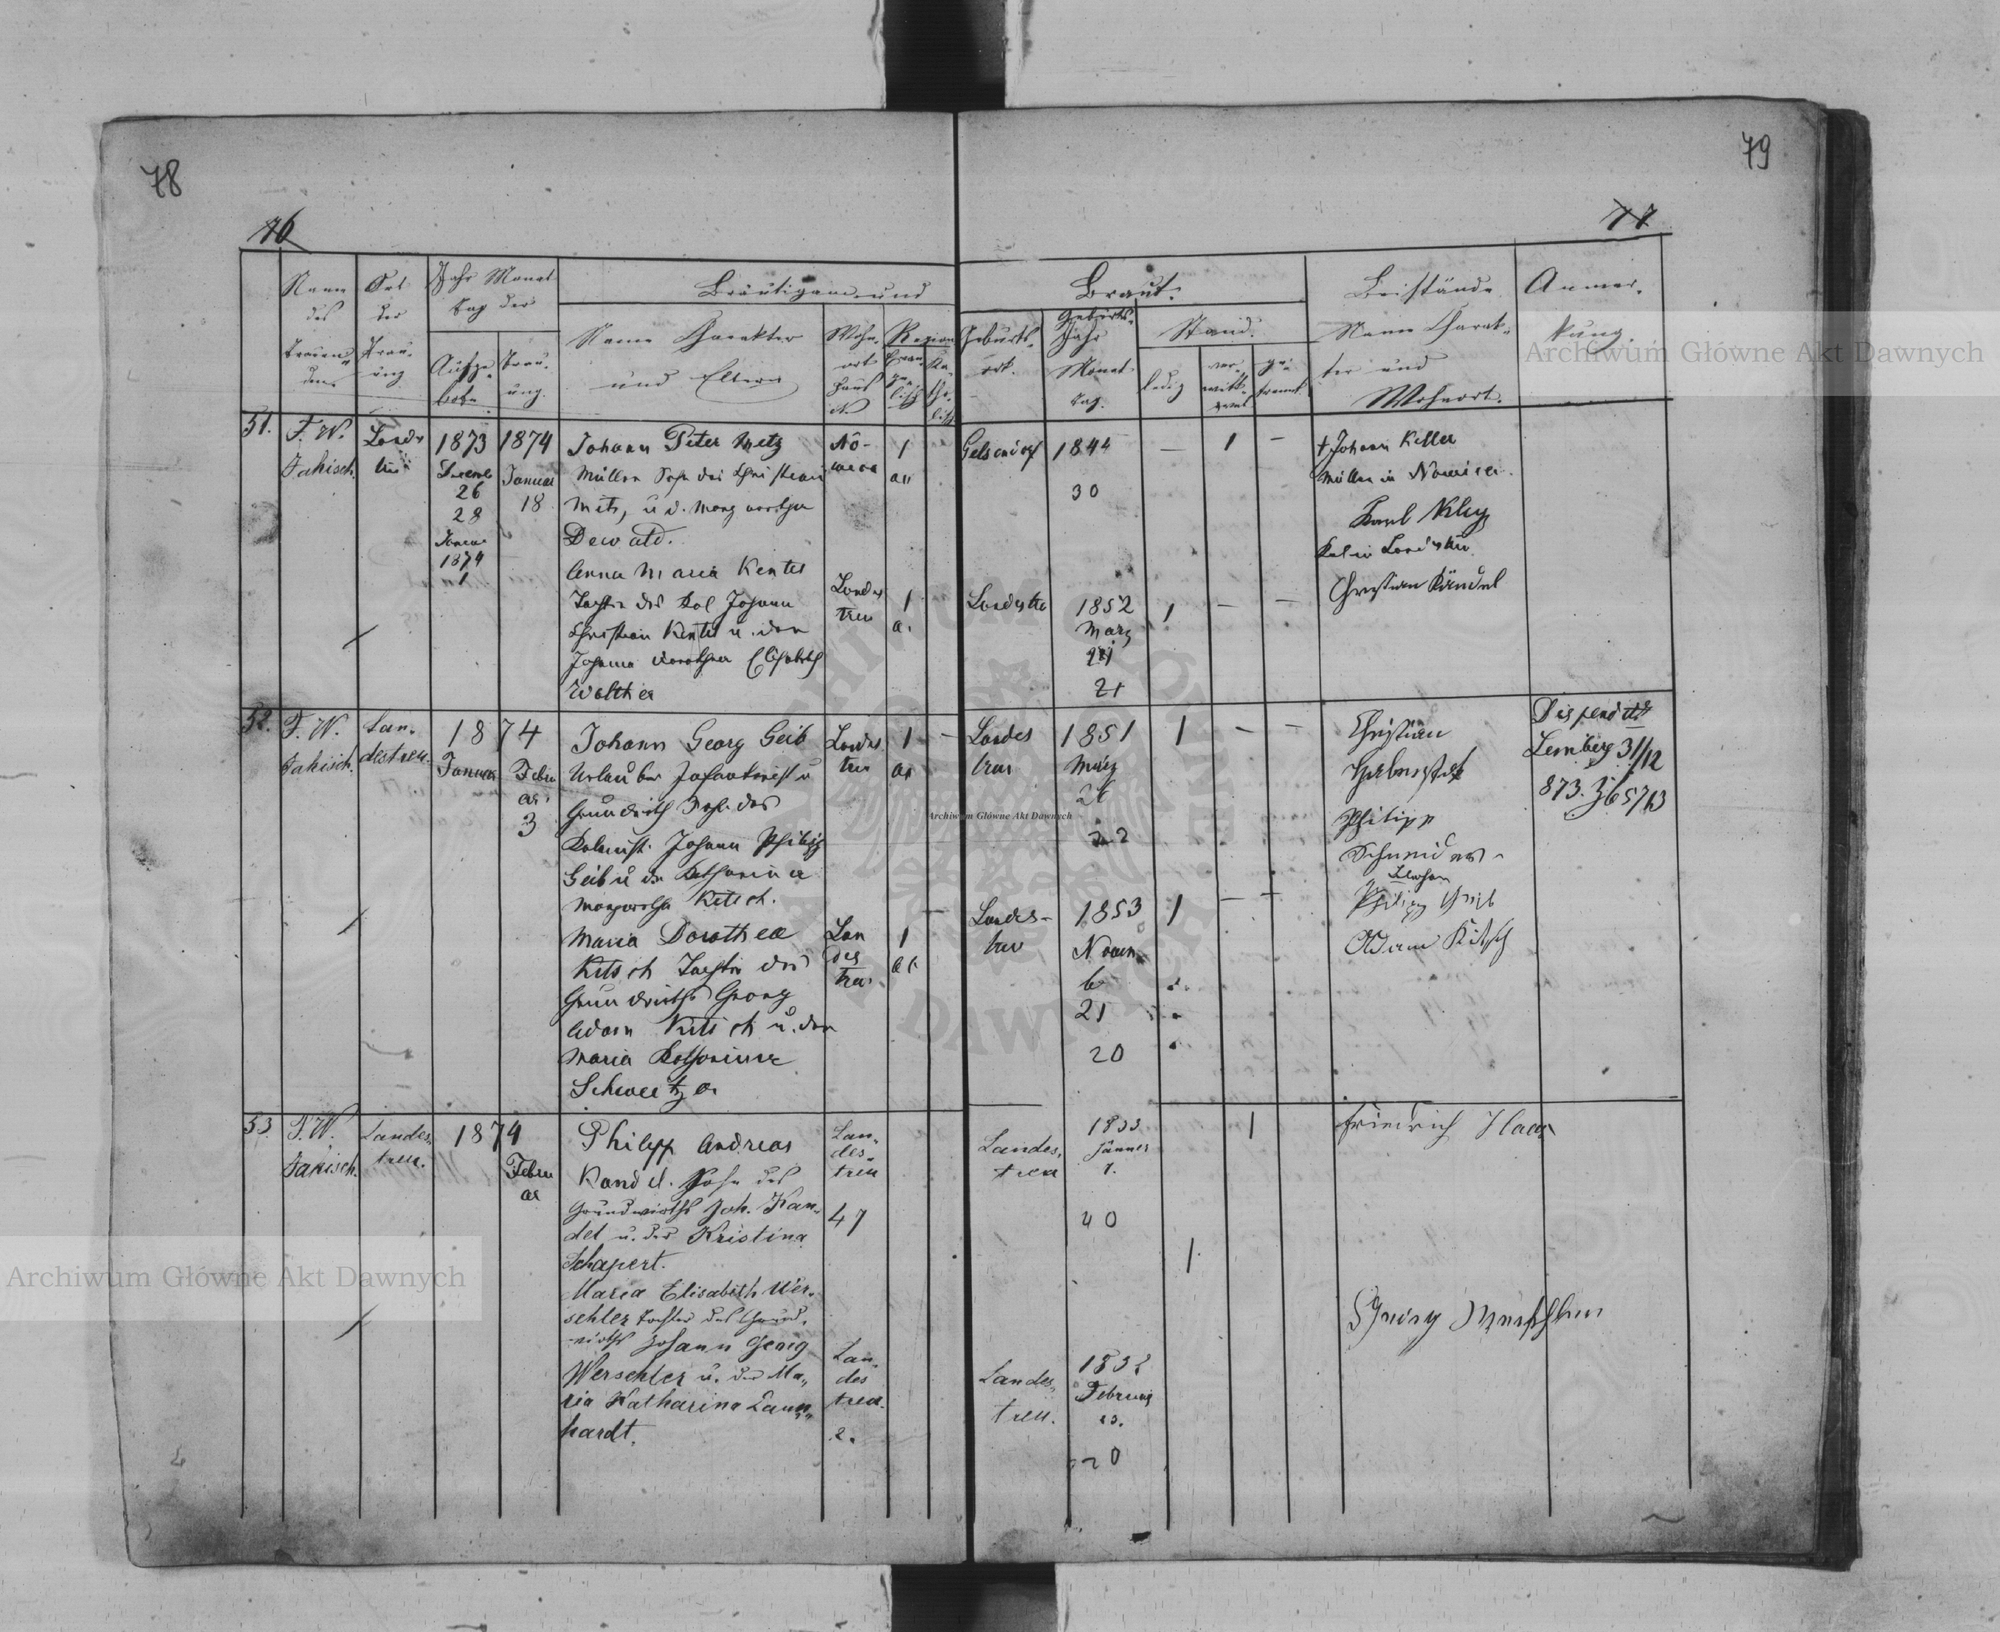 78
79
76
77
Name
des
Trauen-
den
Ort
der
Trau-
ung
Jahr Monat
Tag der
Aufge-
bote
Trau-
ung.
Bräutigam und
Name Charakter
und Eltern
Wohn-
ort
Haus
Braut.
Geburts-
ort.
Geburts-
Jahr
Monat.
Tag.
Stand.
ledig
ver-
witt-
wet
ge-
trennt
Beistände
Name Charak-
ter und
Wohnort.
Anmer-
kung.
51.
F. W.
Jakisch.
Landes
treu
1873
Decemb
26
28
Januar
1874
1
1874
Januar
18
Johann Peter Metz
Müller Sohn des Christian
Metz, u d. Marg aretha
Dewald.
Anna Maria Kentel
Tochter des Kol Johann
Christian Kentel u. der
Johanna Dorothea Elisabeth
Walther
No-
wica
1
Landes
treu
1
Gelsendorf
1844
30
—
1
—
Landestreu
1852
März
21
1
—
—
† Johann Keller
Müller in Nowica.
Karl Kley
Kol in Landestreu
Christian Kandel
52.
F. W.
Jakisch.
Lan-
destreu.
1874
Januar
Febru
ar
3
Johann Georg Geib
Urlauber Infanterist u
Grundwirth Sohn des
Kolonist. Johann Philipp
Geib u der Katharina
Margaretha Ketsch.
Maria Dorothea
Ketsch Tochter des
Grundwirths Georg
Adam Ketsch u. der
Maria Katharina
Schweitzer
Landes
treu
1
—
Lan
des
treu
1
—
Landes
treu
1851
März
22
1
—
—
Landes-
treu
1853
Novem
b
21
20
1
—
—
Christian
Philipp
Schneider
Philipp Geib
Adam Kitsch
Lemberg 31/12
873. Z 65713
53.
F. W.
Jakisch.
Landes-
treu.
1874
Febru
ar
Philipp Andreas
Kandel. Sohn des
Grundwirths Joh. Kan-
del u. der Kristina
Schapert.
Maria Elisabeth Wer-
schler Tochter des Grund-
wirths Johann Georg
Werschler u. der Ma-
ria Katharina Laun-
hardt.
Lan-
des-
treu
47
Lan-
des
treu.
2.
Landes-
treu
1833
Jänner
1.
40
1
1
Landes-
treu.
Februar
23.
20
Friedrich Haas
Archiwum Główne Akt Dawnych
Archiwum Główne Akt Dawnych
Archiwum Główne Akt Dawnych